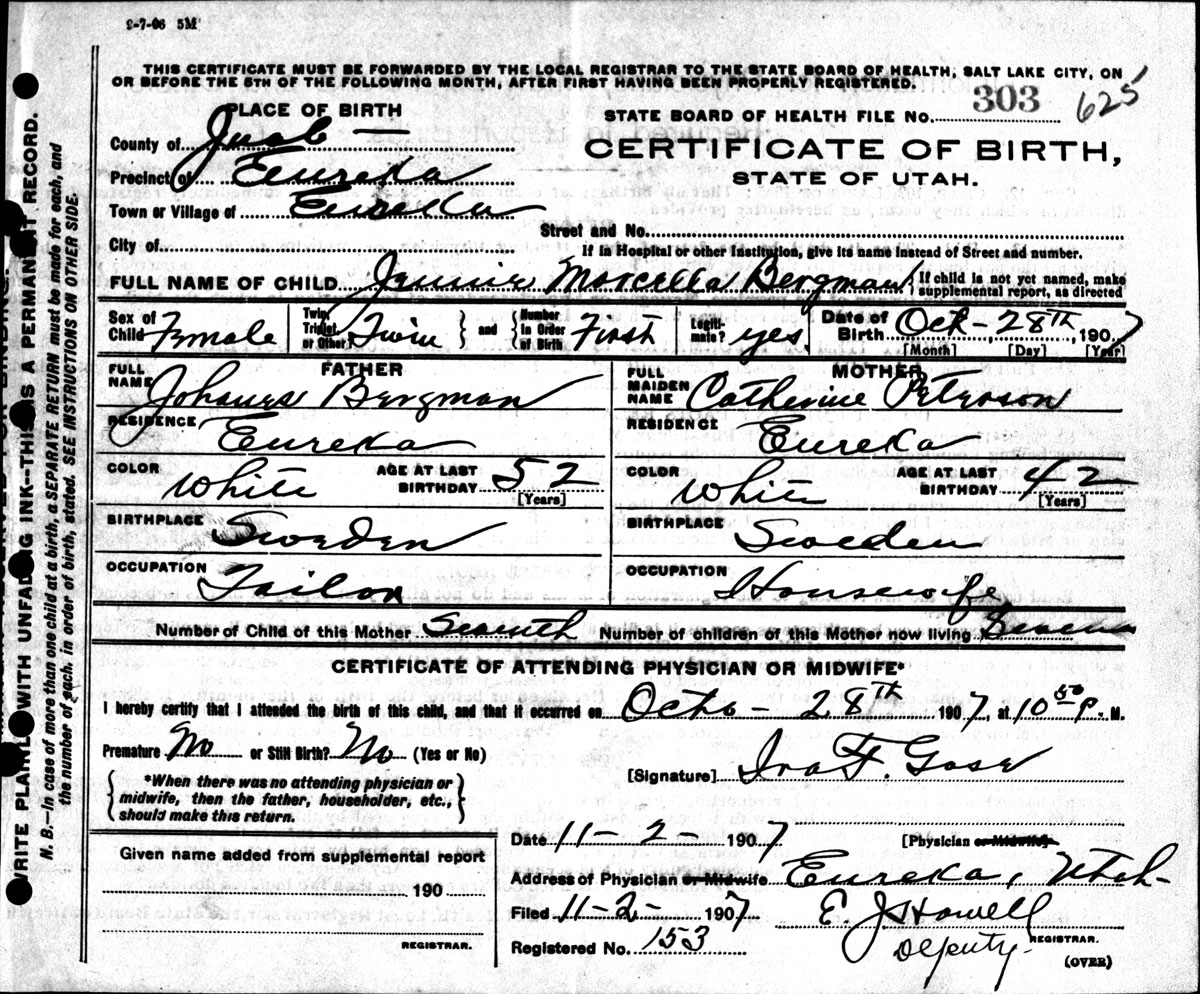 2-7-06 5M
THIS CERTIFICATE MUST BE FORWARDED BY THE LOCAL REGISTRAR TO THE STATE BOARD OF HEALTH, SALT LAKE CITY, ON
OR BEFORE THE 5TH OF THE FOLLOWING MONTH, AFTER FIRST HAVING BEEN PROPERLY REGISTERED.
PLACE OF BIRTH
STATE BOARD OF HEALTH FILE No. 303 625
County of Juab
CERTIFICATE OF BIRTH,
STATE OF UTAH.
Precinct of Eureka
Town or Village of Eureka
Street and No.
City of
If in Hospital or other Institution, give its name instead of Street and number.
FULL NAME OF CHILD Jennie Marcella Bergman { If child is not yet named, make supplemental report, as directed
Sex of Child Female Twin, Triplet, or Other Twin } and { Number in Order of Birth First Legiti-mate? yes Date of Birth Oct - 28TH, 1907
[Month] [Day] [Year]
FATHER
MOTHER
FULL NAME Johanes Bergman
FULL MAIDEN NAME Catherine Peterson
RESIDENCE Eureka
RESIDENCE Eureka
COLOR White AGE AT LAST BIRTHDAY 52 [Years]
COLOR White AGE AT LAST BIRTHDAY 42 [Years]
BIRTHPLACE Sweden
BIRTHPLACE Sweden
OCCUPATION Tailor
OCCUPATION Housewife
Number of Child of this Mother Seventh Number of children of this Mother now living Seven
CERTIFICATE OF ATTENDING PHYSICIAN OR MIDWIFE*
I hereby certify that I attended the birth of this child, and that it occurred on Octo - 28TH 1907, at 10 50 P. M.
Premature No or Still Birth? No (Yes or No)
{ *When there was no attending physician or
midwife, then the father, householder, etc.,
should make this return. }
[Signature] Ira F.
Date 11-2- 1907 [Physician or Midwife]
Given name added from supplemental report
190
REGISTRAR.
Address of Physician or Midwife Eureka, Utah-
Filed 11-2- 1907 E. J. Howell
Registered No. 153 Deputy- REGISTRAR.
(OVER)
WRITE PLAINLY WITH UNFADING INK--THIS IS A PERMANENT RECORD.
N. B.--In case of more than one child at a birth, a SEPARATE RETURN must be made for each, and
the number of each, in order of birth, stated. SEE INSTRUCTIONS ON OTHER SIDE.